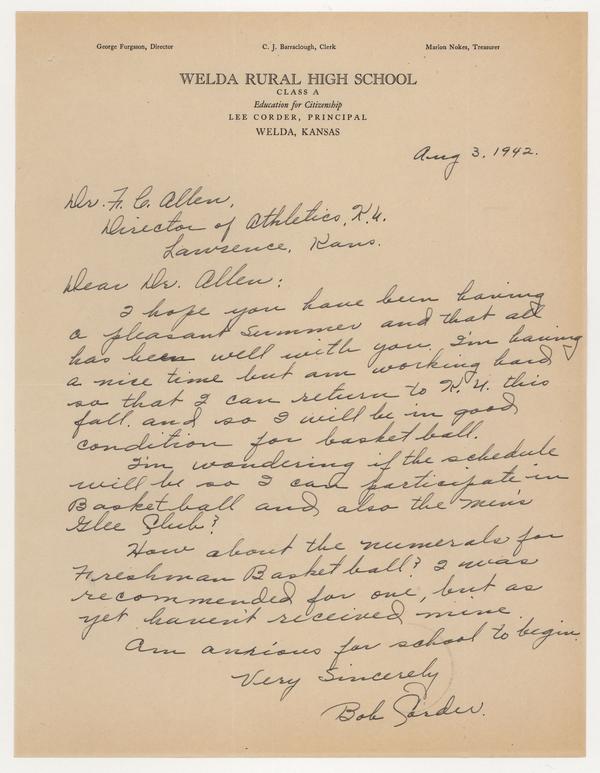 George Furgason, Director C. J. Barraclough, Clerk Marion Nokes, Treasurer
WELDA RURAL HIGH SCHOOL
CLASS A
Education for Citizenship
LEE CORDER, PRINCIPAL
WELDA, KANSAS
Aug 3, 1942.
Dr. F. C. Allen,
Director of Athletics, K.U.
Lawrence, Kans.
Dear Dr. Allen:
I hope you have been having
a pleasant summer and that all
has been well with you. I'm having
a nice time but am working hard
so that I can return to K.U. this
fall. and so I will be in good
condition for basketball.
I'm wondering if the schedule
will be so I can participate in
Basketball and also the Men's
Glee Club?
How about the numerals for
Freshman Basketball? I was
recommended for one, but as
yet haven't received mine.
Am anxious for school to begin.
Very Sincerely
Bob Corder.